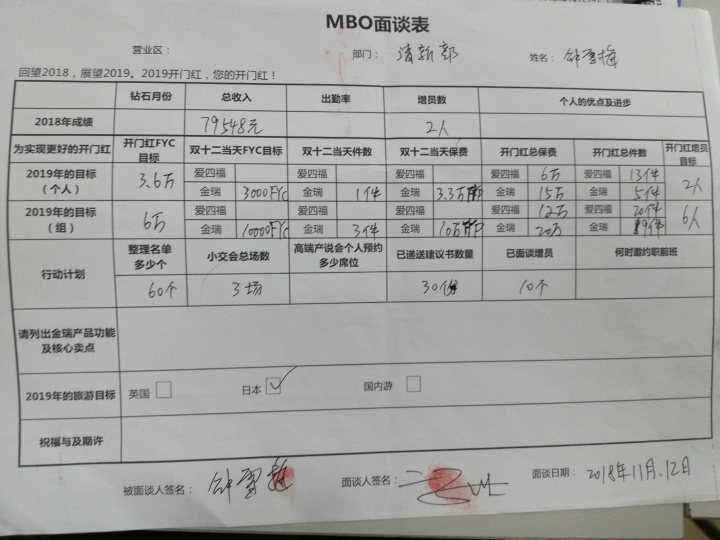 MBO面谈表
营业区： 部门：清新部 姓名：钟雪梅
回望2018，展望2019。2019开门红，您的开门红！
钻石月份 总收入 出勤率 增员数 个人的优点及进步
2018年成绩 79548元 2人
为实现更好的开门红 开门红FYC目标 双十二当天FYC目标 双十二当天件数 双十二当天保费 开门红总保费 开门红总件数 开门红增员目标
2019年的目标（个人） 3.6万 爱四福 爱四福 爱四福 爱四福 6万 爱四福 13件 2人
金瑞 3000FYC 金瑞 1件 金瑞 3.3万 金瑞 15万 金瑞 5件
2019年的目标（组） 6万 爱四福 爱四福 爱四福 爱四福 12万 爱四福 20件 6人
金瑞 10000FYC 金瑞 3件 金瑞 10万 金瑞 20万 金瑞 19件
行动计划 整理名单多少个 小交会总场数 高端产说会个人预约多少席位 已递送建议书数量 已面谈增员 何时邀约职前班
60个 3场 30份 10个
请列出金瑞产品功能及核心卖点
2019年的旅游目标 英国 日本 ✓ 国内游
祝福与及期许
被面谈人签名：钟雪梅 面谈人签名： 面谈日期：2018年11月.12日